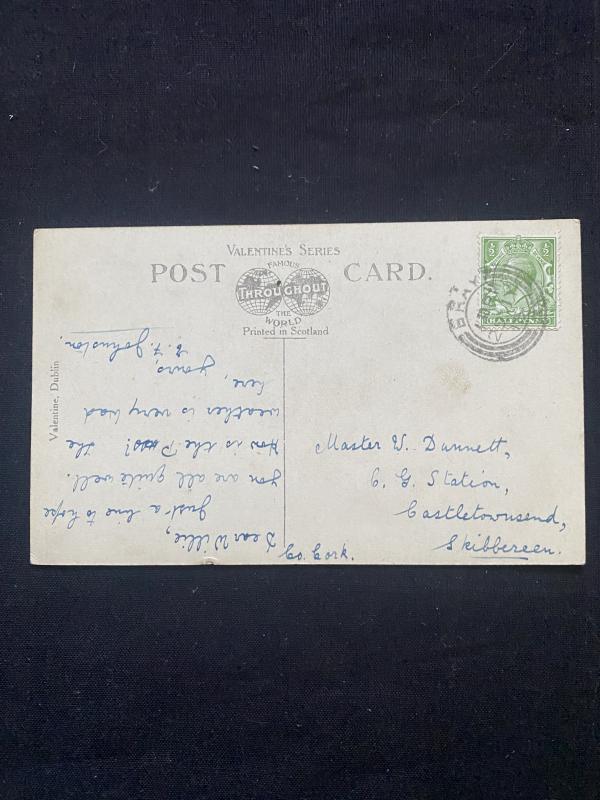 VALENTINE'S SERIES
POST CARD.
FAMOUS
THROUGHOUT
THE
WORLD
Printed in Scotland
½ ½
BRAY
Valentine, Dublin
Dear Willie,
Just a line to hope
you are all quite well.
How is the ? The
weather is very bad
here,
Yours,
E. F. Johnston.
Master W. Dunnett,
C. G. Station,
Castletownsend,
Skibbereen.
Co. Cork.